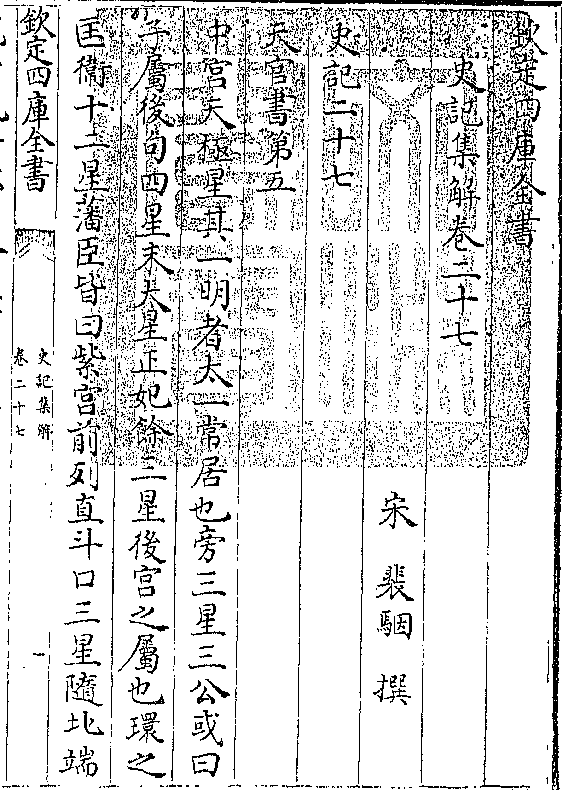 欽定四庫全書
史記集解卷二十七
宋 裴駰 撰
史記二十七
天官書第五
中宮天極星其一明者太一常居也旁三星三公或曰
子屬後句四星末大星正妃餘三星後宮之屬也環之
匡衛十二星藩臣皆曰紫宮前列直斗口三星隨北端
欽定四庫全書
史記集解
卷二十七
一